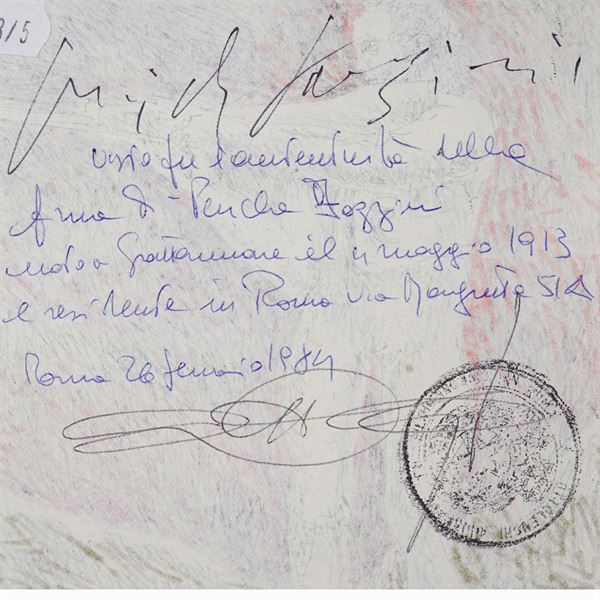 Pericle Fazzini
visto per l'autenticità della
firma di Pericle Fazzini
nato a Grottammare il 4 maggio 1913
e residente in Roma via Margutta 51A
Roma 26 gennaio 1984